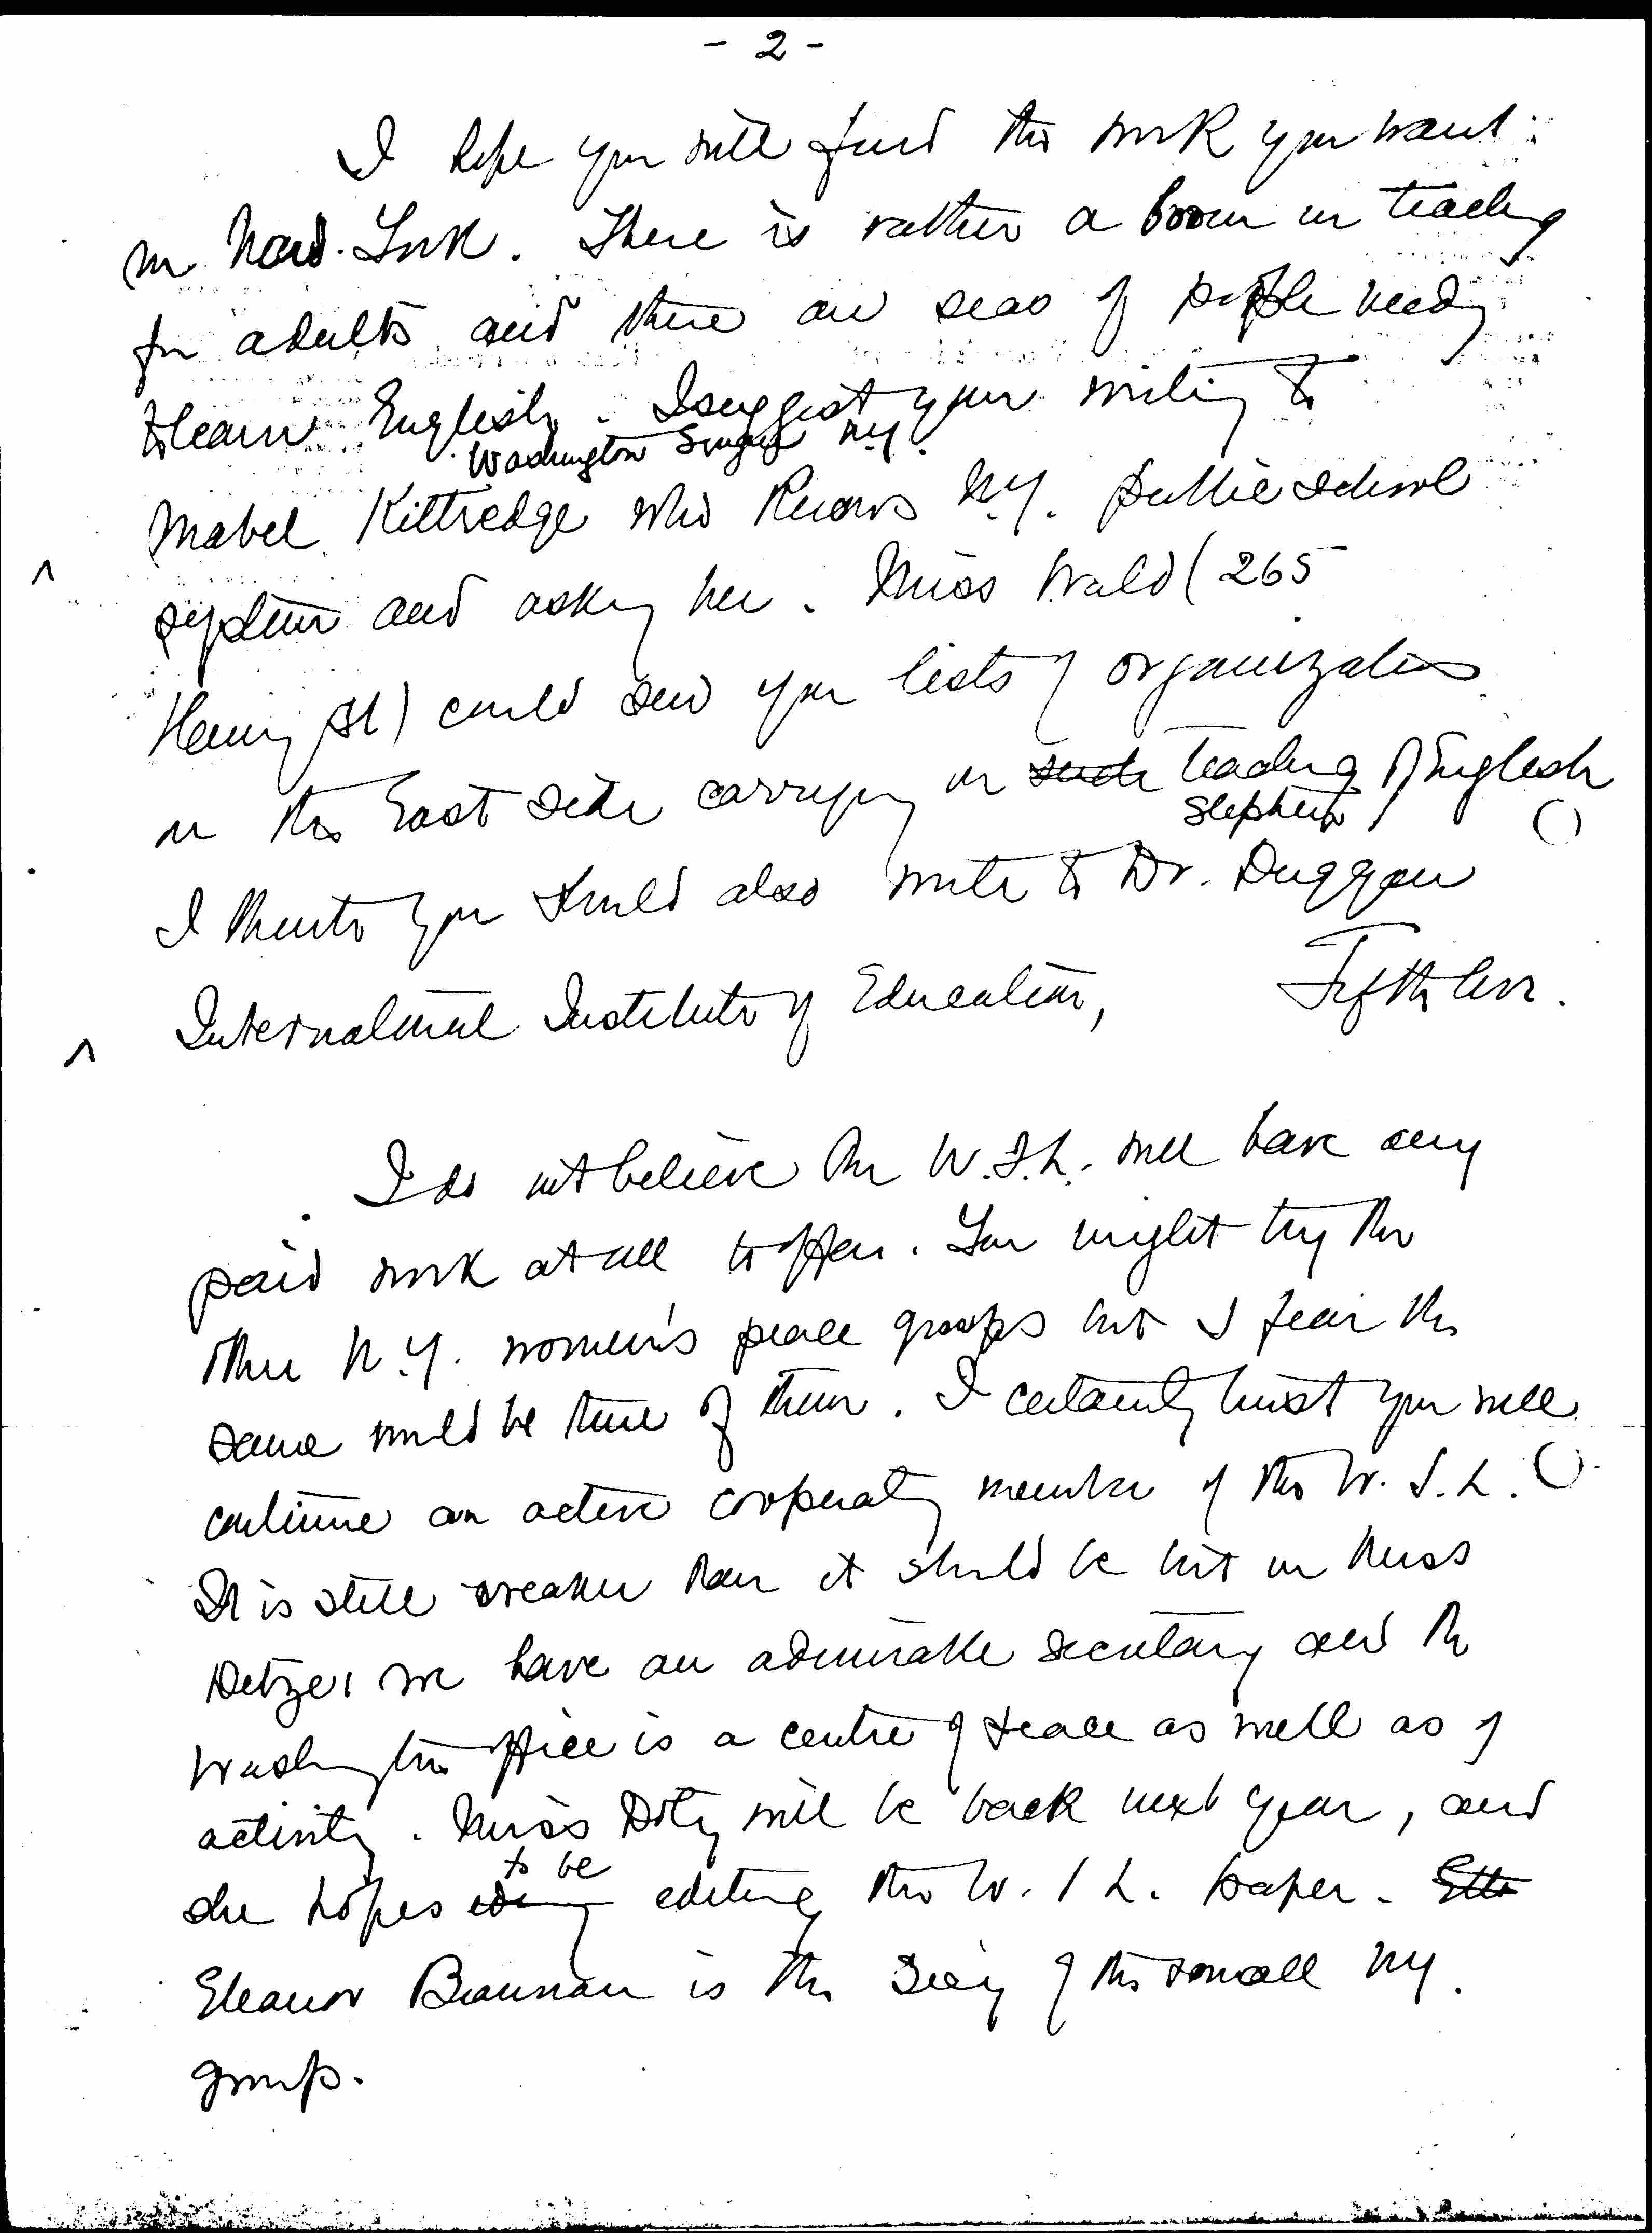 - 2 -
I hope you will find the work you want
in New York. There is rather a boom in teaching
for adults and there are seas of people needing
to learn English. I suggest your writing to
Washington Square N.Y.
Mabel Kittredge who knows N.Y. public school
system and asking her. Miss Wald (265
Henry St) could send you lists of organizations
on the East Side carrying on such teaching of English
Stephen
I think you should also write to Dr. Duggan
International Institute of Education, Fifth Ave.
I do not believe the W.I.L. will have any
paid work at all to offer. You might try the
other N.Y. women's peace groups but I fear the
same would be true of them. I certainly trust you will
continue an active cooperating member of the W.I.L.
It is still weaker than it should be but in Miss
Detzer we have an admirable secretary and the
Washington office is a centre of peace as well as of
activity. Miss Doty will be back next year, and
to be
she hopes editing the W.I.L. paper.
Eleanor Brannan is the Sec'y of the small N.Y.
group.